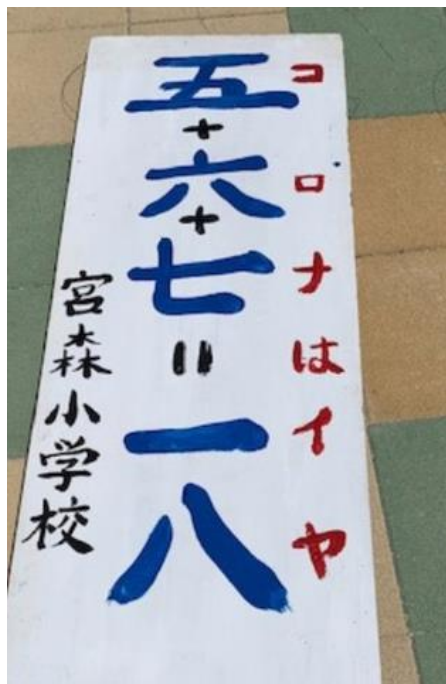 コロナはイヤ
五+六+七=一八
宮森小学校